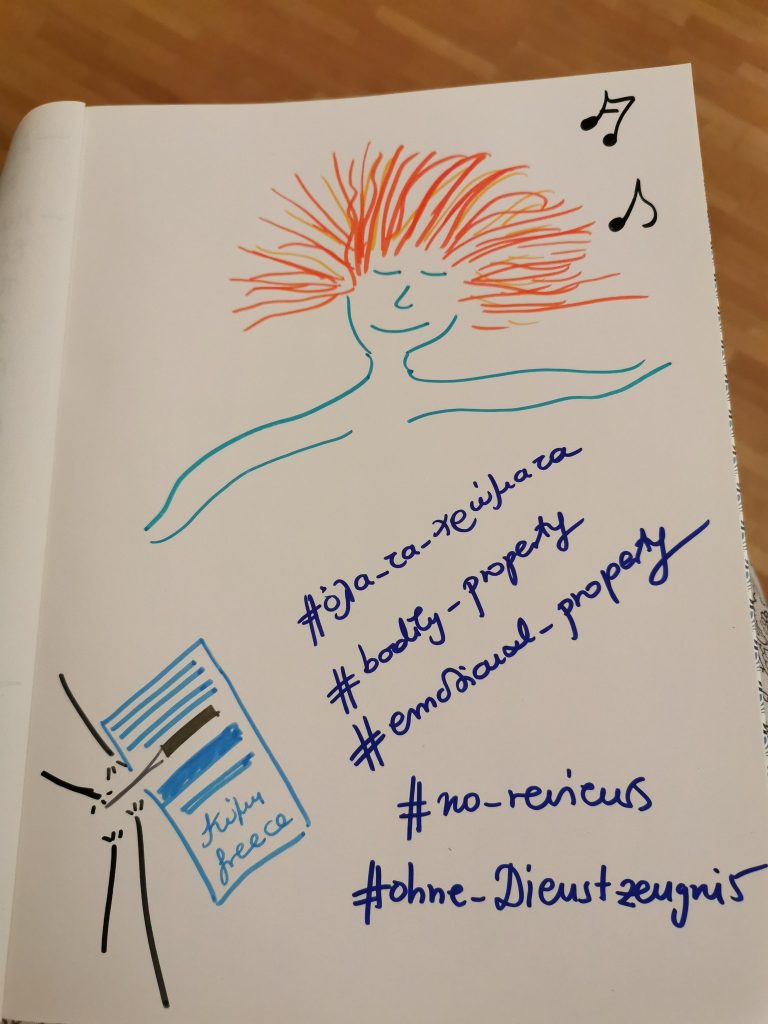 #όλα_τα_χρώματα
#bodily_property
#emotional_property
#no-reviews
#ohne_Dienstzeugnis
Κύμη
Greece